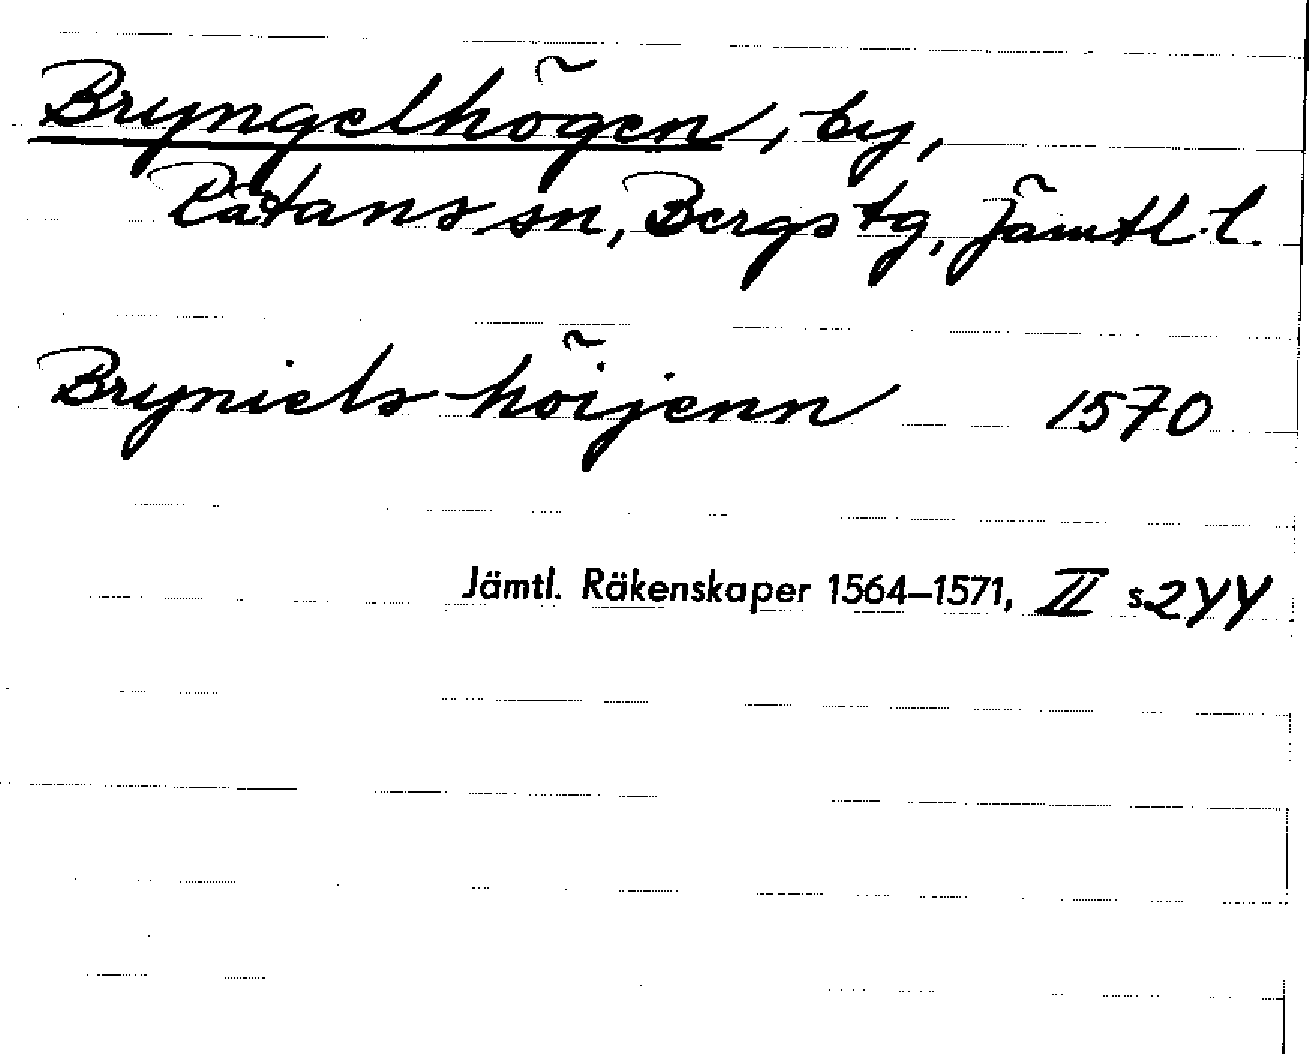 Bryngelhögen, by,
Rätans sn, Bergs tg, Jämtl. l.
Bryniels höijenn 1570
Jämtl. Räkenskaper 1564–1571, II s. 244